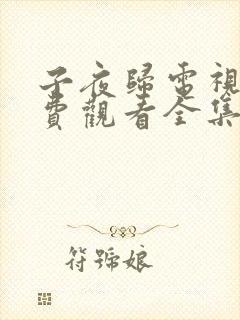 子夜歸電視
費觀看全集
符號娘